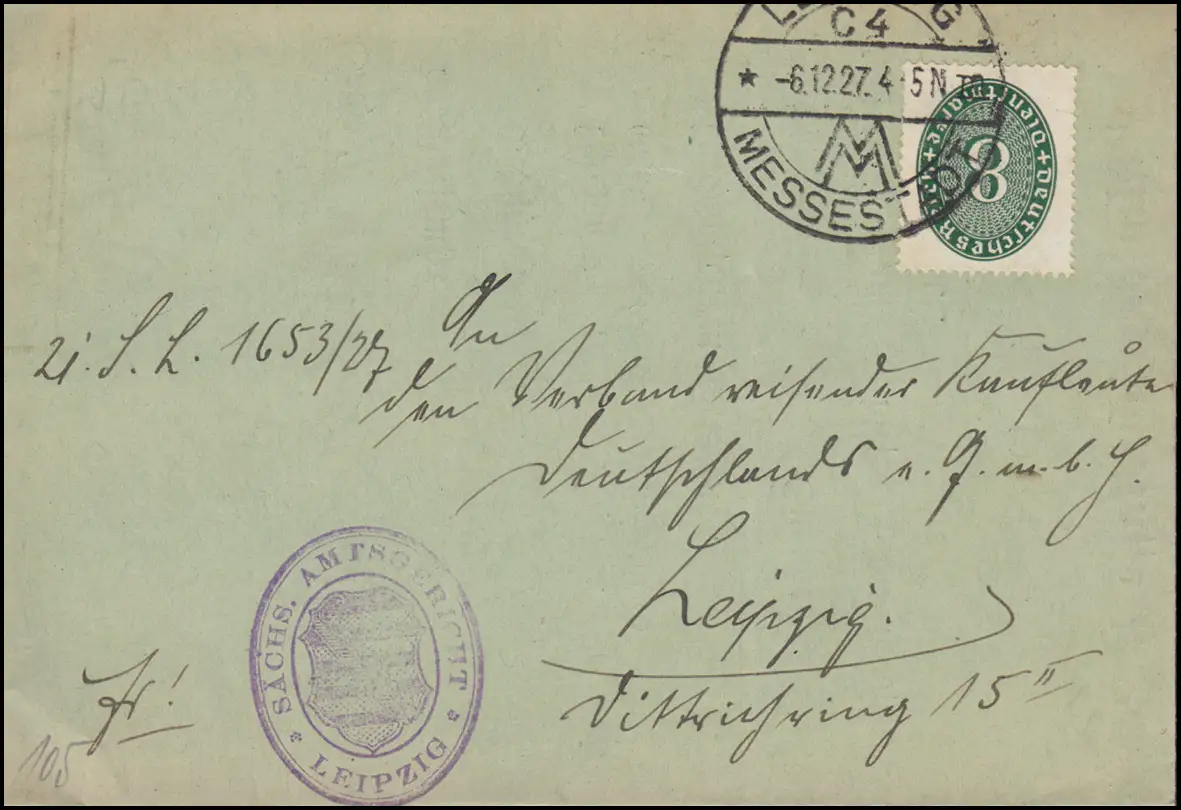 LEIPZIG
C4
* -6.12.27. 4-5 N
MESSESTADT
Deutsches Reich + Dienstmarke +
8
An
21. S. L. 1653/27
den Verband reisender Kaufleute
Deutschlands e. G. m. b. H.
Leipzig.
Dittrichring 15 II
SÄCHS. AMTSGERICHT
* LEIPZIG *
Fr!
105